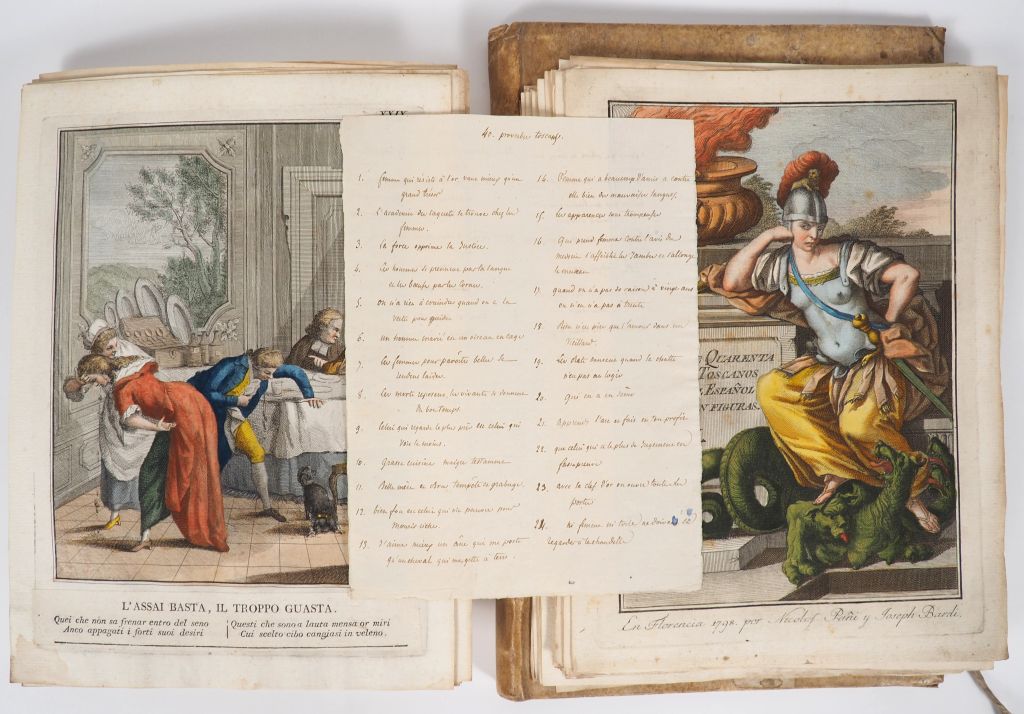 XXIX
L'ASSAI BASTA, IL TROPPO GUASTA.
Quei che non sa frenar entro del seno
Anco appagati i forti suoi desiri
Questi che sono a lauta mensa or miri
Cui scelto cibo cangiasi in veleno.
40. proverbes toscans.
1. femme qui resiste à l'or, vaut mieux qu'un
grand tresor
2. L'academie des caquets se trouve chez les
femmes.
3. La force opprime la Justice.
4. Les hommes se prennent par la langue
et les boeufs par les cornes.
5. on n'a rien à craindre quand on a la
verité pour guide
6. Un homme marié est un oiseau en cage
7. les femmes pour paroître belles se
rendent laides
8. Les morts reposent, les vivants se donnent
du bon temps
9. Celui qui regarde le plus près est celui qui
voit le moins.
10. Grasse cuisine maigre testament
11. Belle mère et
12. bien fou est celui qui se pour
mourir riche.
13. J'aime mieux un âne qui me porte
qu'un cheval qui me jette à terre.
14. Femme qui a beaucoup d'amis a contre
elle bien des mauvaises langues.
15. les apparences sont trompeuses
16. Qui prend femme contre l'avis du
medecin s'affaiblit les Jambes et s'allonge
le museau
17. quand on n'a pas de raison à vingt ans
on n'en a pas à trente
18. Rien n'est pire que l'amour dans un
Vieillard
19. Les rats dansent quand la chatte
n'est pas au logis
20. Qui en a en
21. apprends l'art et fais en ton profit
22. que celui qui a le plus de Jugement en
fasse preuve
23. avec la clef d'or on ouvre toute les
portes
24. ni femme ni toile ne doivent se
regarder à la chandelle
QUARENTA
TOSCANOS
ESPAÑOL
N FIGURAS.
En Florencia 1798. por Nicolos y Joseph Bardi.